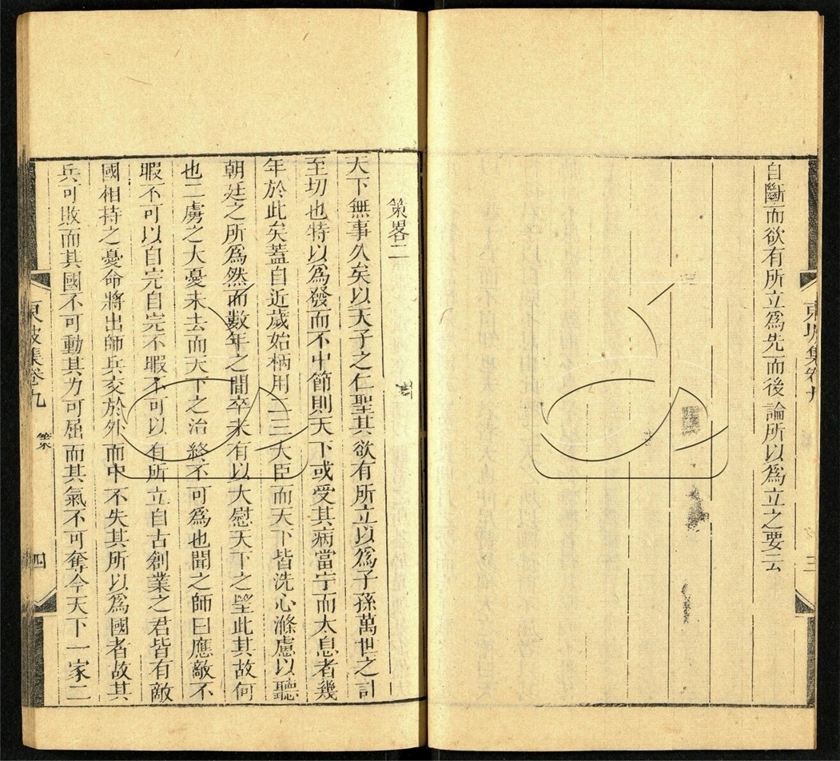 自斷而欲有所立爲先而後論所以爲立之要云
東坡集卷九
三
策畧二
天下無事久矣以天子之仁聖其欲有所立以爲子孫萬世之計
至切也特以爲發而不中節則天下或受其病當宁而太息者幾
年於此矣蓋自近歲始柄用二三大臣而天下皆洗心滌慮以聽
朝廷之所爲然而數年之間卒未有以大慰天下之望此其故何
也二虜之大憂未去而天下之治終不可爲也聞之師曰應敵不
暇不可以自完自完不暇不可以有所立自古創業之君皆有敵
國相持之憂命將出師兵交於外而中不失其所以爲國者故其
兵可敗而其國不可動其力可屈而其氣不可奪今天下一家二
東坡集卷九
策
四